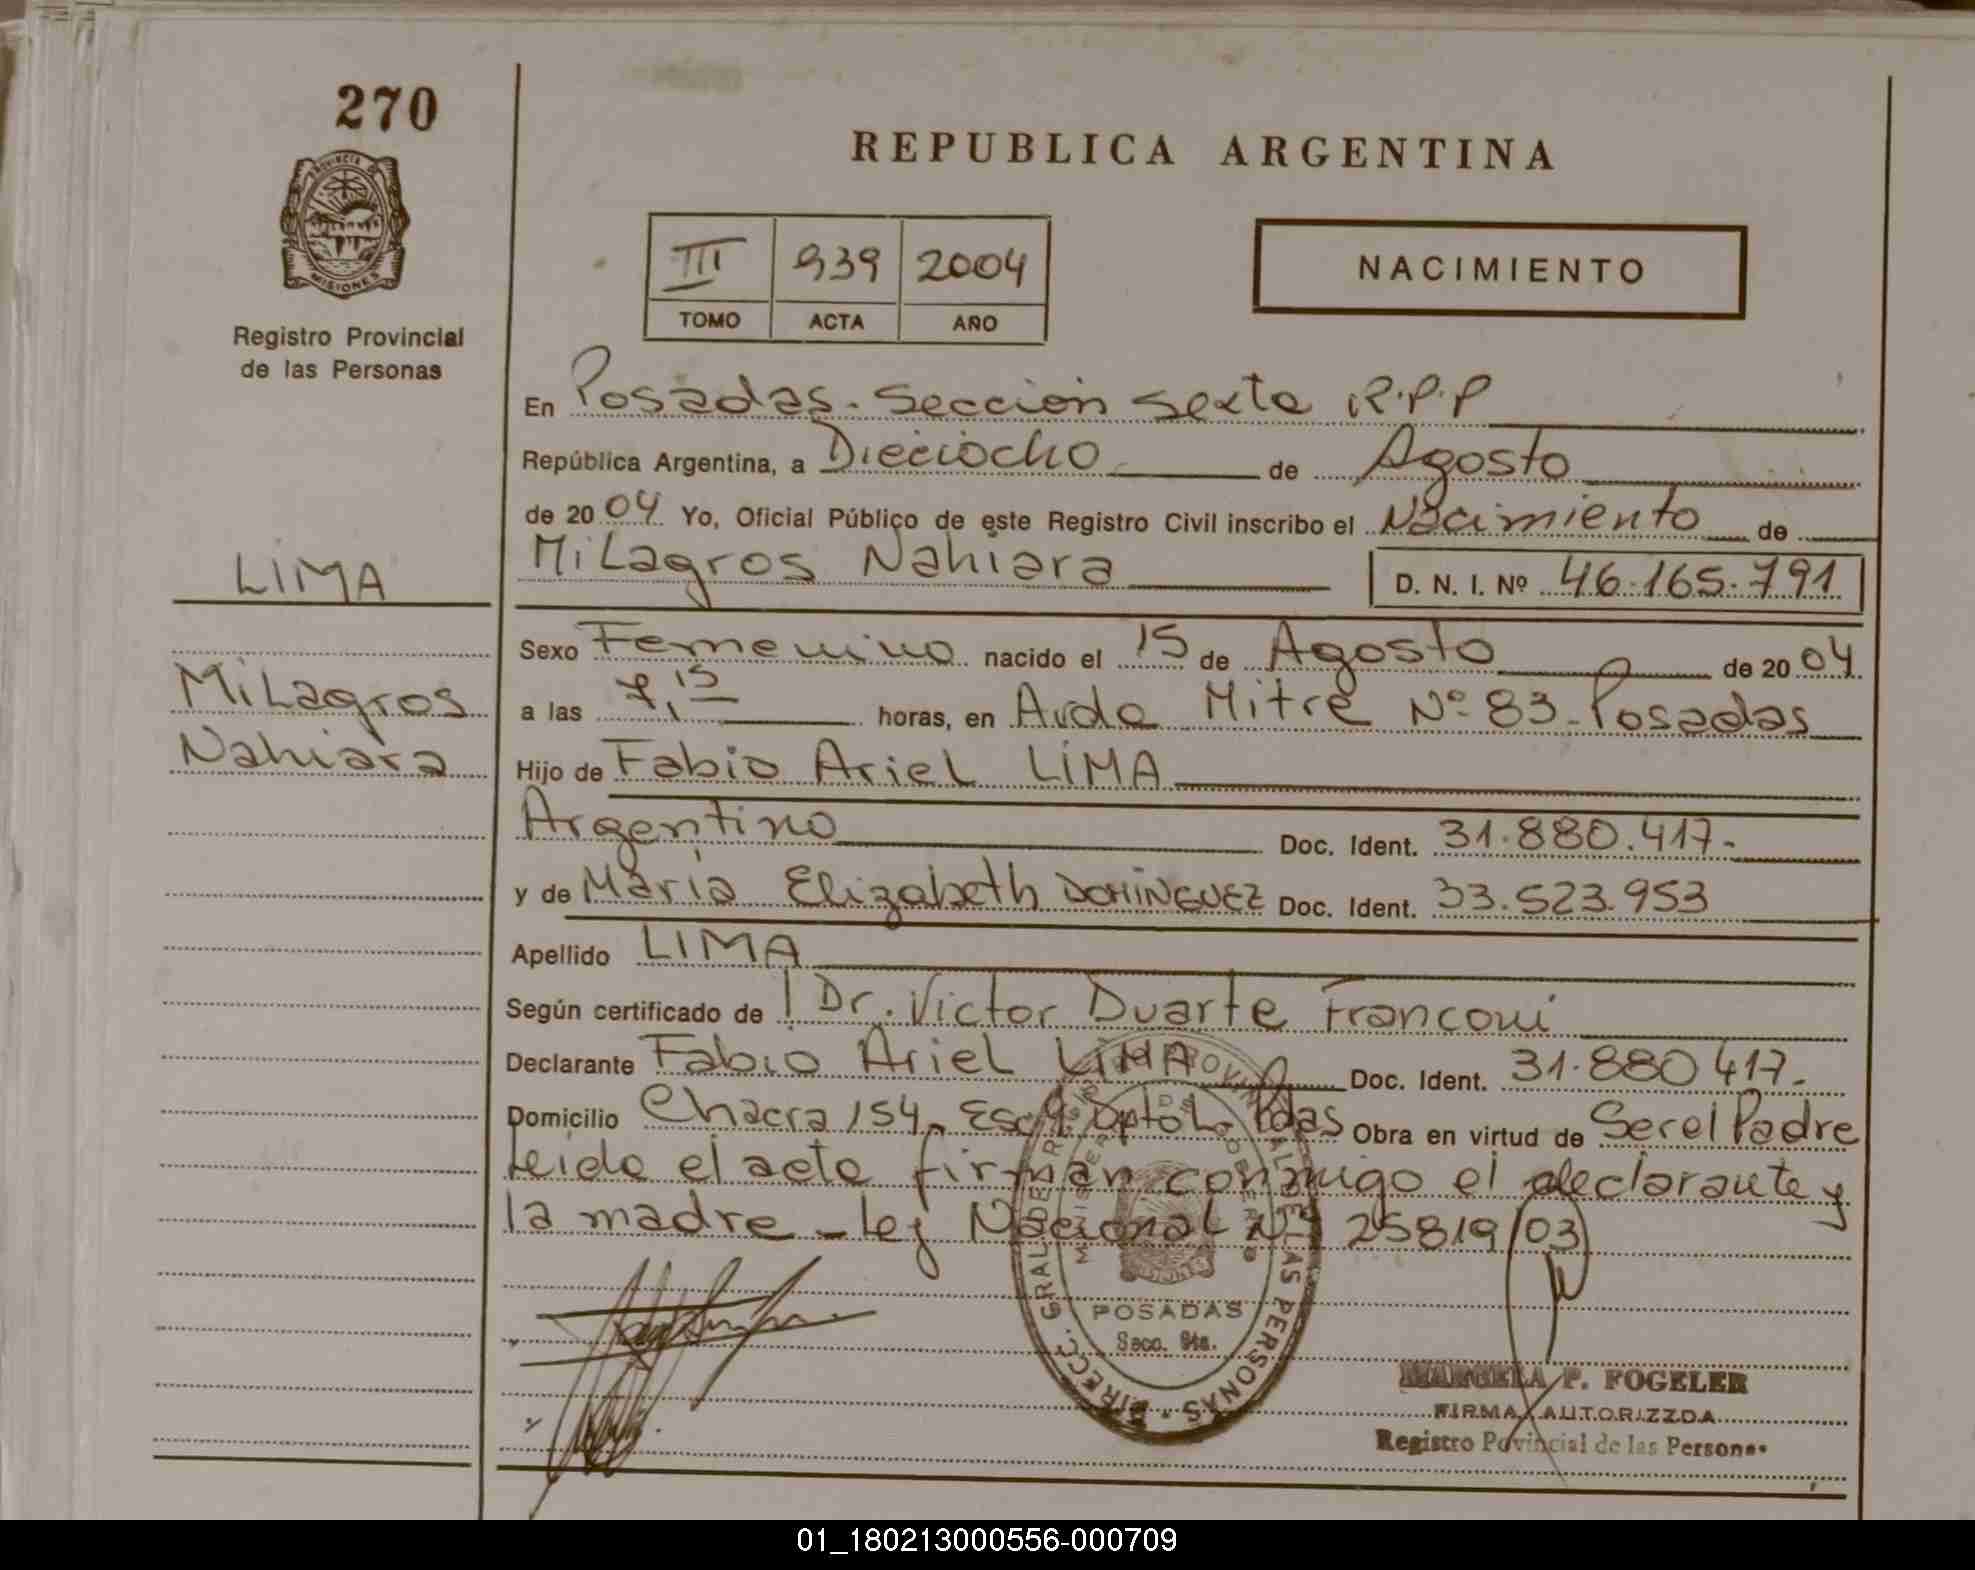 270
PROVINCIA DE
MISIONES
Registro Provincial
de las Personas
REPUBLICA ARGENTINA
III 939 2004
TOMO ACTA AÑO
NACIMIENTO
En Posadas. Sección sexta R.P.P
República Argentina, a Dieciocho de Agosto
de 2004 Yo, Oficial Público de este Registro Civil inscribo el Nacimiento de
Milagros Nahiara D. N. I. Nº 46.165.791
LIMA
Milagros
Nahiara
Sexo Femenino nacido el 15 de Agosto de 2004
a las 7,15 horas, en Avda Mitre Nº 83 - Posadas
Hijo de Fabio Ariel LIMA
Argentino Doc. Ident. 31.880.417.-
y de María Elizabeth DOMINGUEZ Doc. Ident. 33.523.953
Apellido LIMA
Según certificado de Dr. Victor Duarte Franconi
Declarante Fabio Ariel LIMA Doc. Ident. 31.880 417.-
Domicilio Chacra 154. Esc 9 Dpto L. Pdas Obra en virtud de Ser el Padre
Leida el acta firman conmigo el declarante y
la madre - Ley Nacional Nº 25819/03
POSADAS
Secc. 6ta.
MARCELA P. FOGELER
FIRMA AUTORIZZDA
Registro Povincial de las Personas
01_180213000556-000709